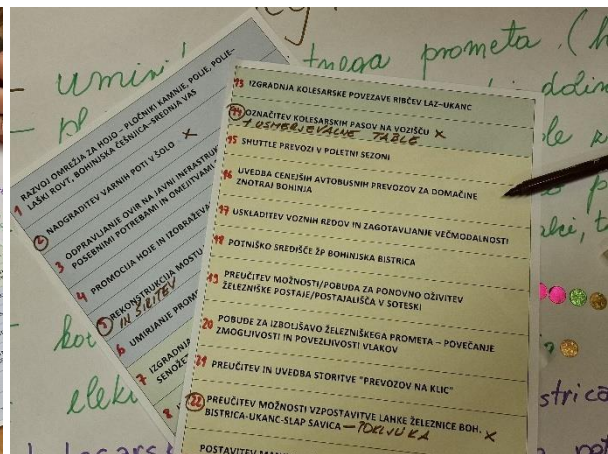 umir
tnega prometa (h
dolin
le
kor
elek
strica
1 RAZVOJ OMREŽJA ZA HOJO – PLOČNIKI KAMNJE, POLJE, POLJE–
LAŠKI ROVT, BOHINJSKA ČEŠNJICA–SREDNJA VAS
2 NADGRADITEV VARNIH POTI V ŠOLO X
3 ODPRAVLJANJE OVIR NA JAVNI INFRASTRUK
POSEBNIMI POTREBAMI IN OMEJITVAMI
4 PROMOCIJA HOJE IN IZOBRAŽEVA
5 REKONSTRUKCIJA MOSTU
IN ŠIRITEV
6 UMIRJANJE PROM
7 IZGRADNJA
SENOŽET
8
13 IZGRADNJA KOLESARSKE POVEZAVE RIBČEV LAZ–UKANC
14 OZNAČITEV KOLESARSKIH PASOV NA VOZIŠČU X
+ USMERJEVALNE TABLE
15 SHUTTLE PREVOZI V POLETNI SEZONI
16 UVEDBA CENEJŠIH AVTOBUSNIH PREVOZOV ZA DOMAČINE
ZNOTRAJ BOHINJA
17 USKLADITEV VOZNIH REDOV IN ZAGOTAVLJANJE VEČMODALNOSTI
18 POTNIŠKO SREDIŠČE ŽP BOHINJSKA BISTRICA
19 PREUČITEV MOŽNOSTI/POBUDA ZA PONOVNO OŽIVITEV
ŽELEZNIŠKE POSTAJE/POSTAJALIŠČA V SOTESKI
20 POBUDE ZA IZBOLJŠAVO ŽELEZNIŠKEGA PROMETA – POVEČANJE
ZMOGLJIVOSTI IN POVEZLJIVOSTI VLAKOV
21 PREUČITEV IN UVEDBA STORITVE "PREVOZOV NA KLIC"
22 PREUČITEV MOŽNOSTI VZPOSTAVITVE LAHKE ŽELEZNICE BOH.
BISTRICA-UKANC-SLAP SAVICA – POKLJUKA X
POSTAVITEV